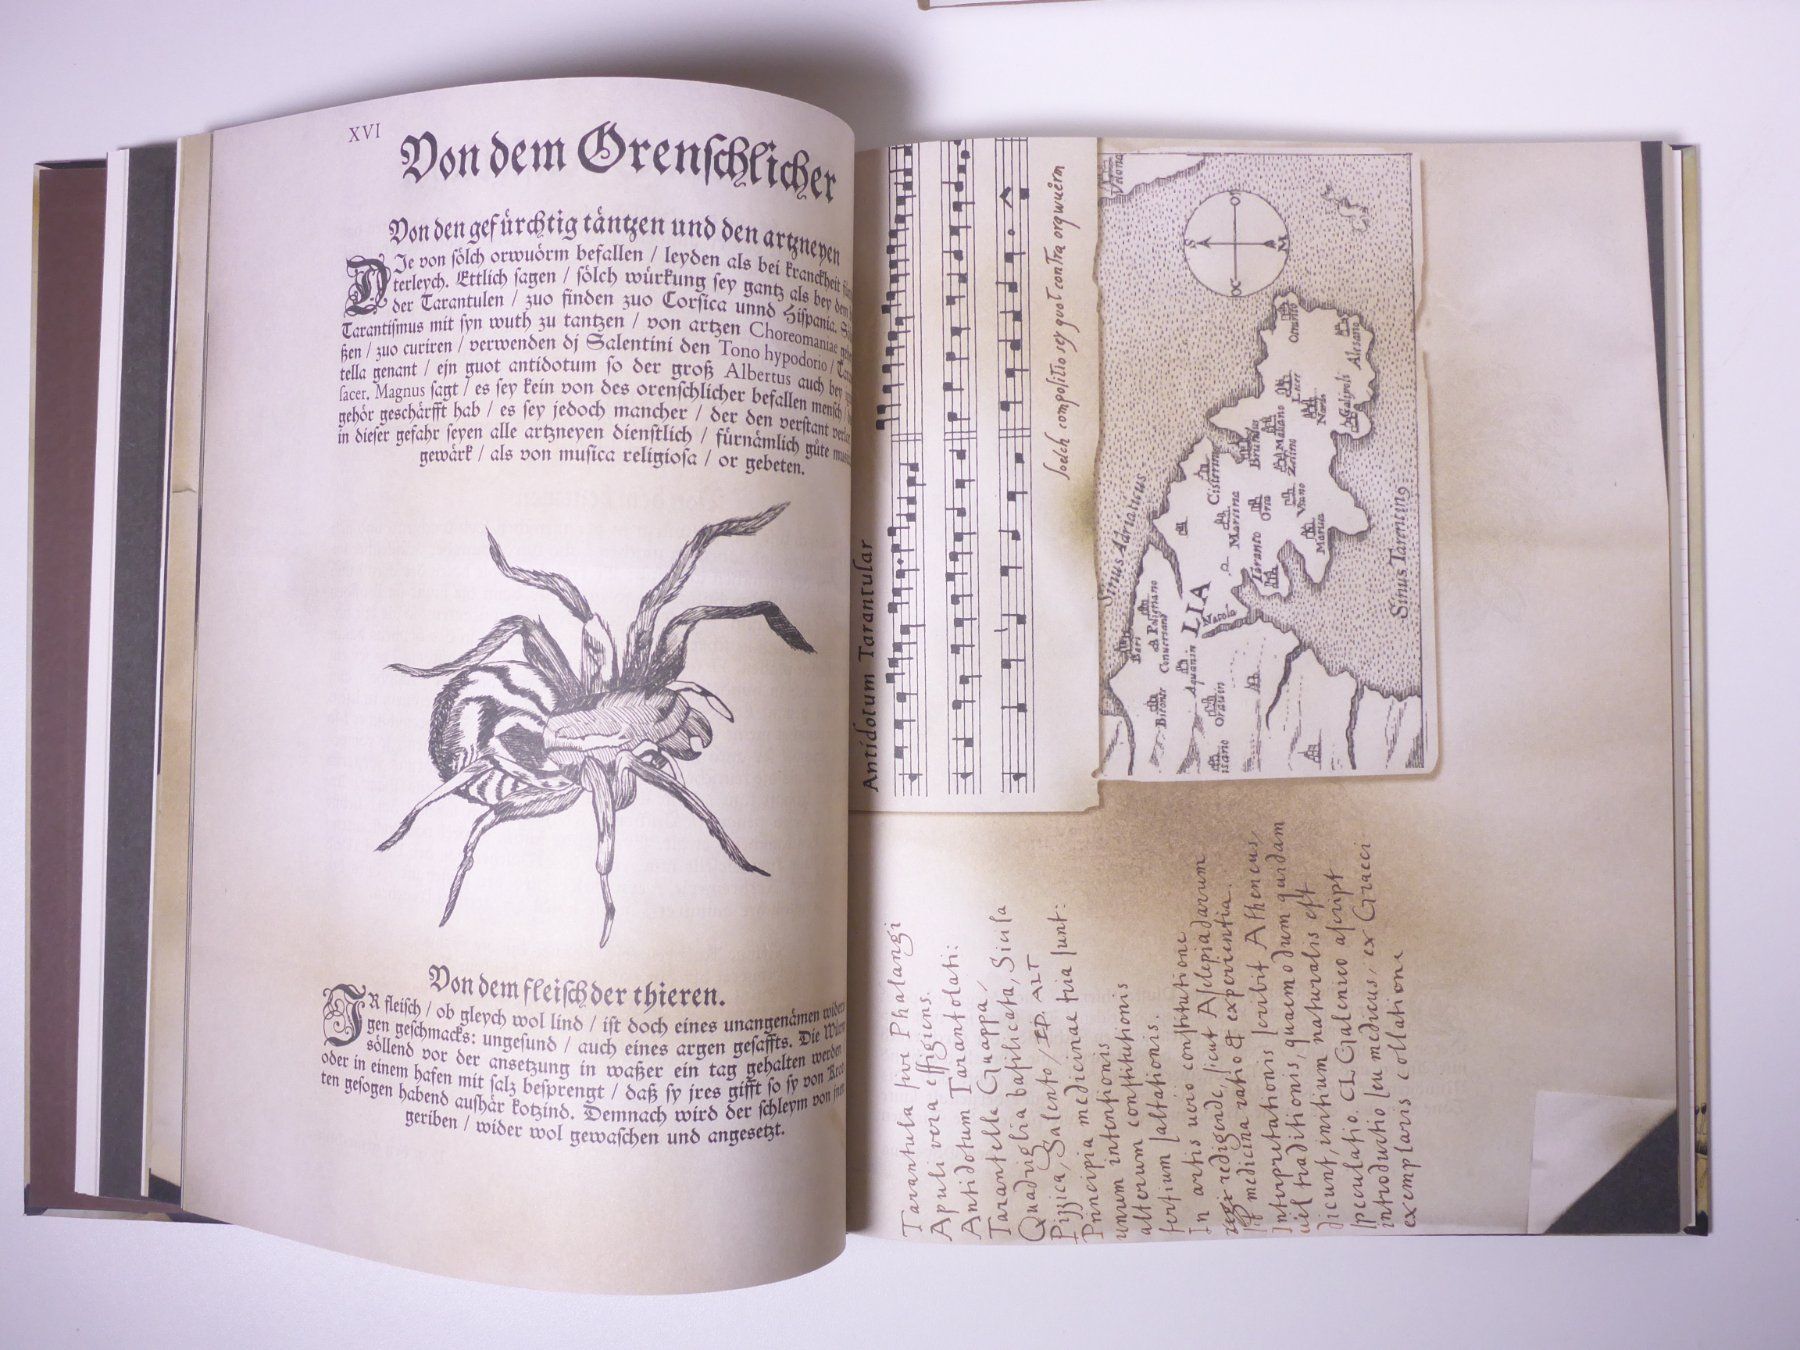 XVI
Von dem Orenſchlicher
Von den gefürchtig täntzen und den artzneyen
DIe von ſölch orwuörm befallen / leyden als bei kranckheit
terleych. Ettlich ſagen / ſölch würkung ſey gantz als bey dem
der Tarantulen / zuo finden zuo Corſica unnd Hiſpania.
Tarantiſmus mit ſyn wuth zu tantzen / von artzen Choreomaniae
ßen / zuo curiren / verwenden dj Salentini den Tono hypodorio /
tella genant / ejn guot antidotum ſo der groß Albertus auch bey
ſacer. Magnus ſagt / es ſey kein von des orenſchlicher befallen menſch /
gehör geſchärfft hab / es ſey jedoch mancher / der den verſtant
in dieſer gefahr ſeyen alle artzneyen dienſtlich / fürnämlich gůte
gewärk / als von muſica religioſa / or gebeten.
Von dem fleiſch der thieren.
IR fleiſch / ob gleych wol lind / iſt doch eines unangenämen widera
gen geſchmacks: ungeſund / auch eines argen geſaffts. Die Würm
ſöllend vor der ansetzung in waßer ein tag gehalten werden
oder in einem hafen mit ſalz beſprengt / daß ſy jres gifft ſo ſy von
ten geſogen habend auſhär kotzind. Demnach wird der ſchleym von jnen
geriben / wider wol gewaſchen und angeſetzt.
Antidotum Tarantulae
ſoelch compoſitio ſey guot contra orqwuerm
Sinus Adriaticus
Sinus Tarentinus
LIA
S
M
OR
Velona
Otranto
Alesano
Lecce
Nardo
Galipoli
Brundus
Meſiano
Ceſino
Ciſterino
Oria
Marcina
Taranto
Bari
Polignano
Converſano
Bitonto
Aquaviva
Gravina
Tarantula ſive Phalangi
Apuli vera effigiens.
Antidotum Tarantolati:
Tarantella Guappa,
Quadriglia baſilicata, Sicula
Pizzica, Salento / ED. ALT
Principia medicinae tria ſunt:
unum intentionis
alterum conſtitutionis
tertium ſaltationis.
In artis uero conſtitutione
redigende, ſicut Aſclepiadarum
medicina ratio & experientia.
Interpretationis ſcribit Atheneus,
uel traditionis, quaemodum quidam
dicunt, initium naturalis eſt
ſpeculatio. CL Galenico aſcript
introductio ſeu medicus, ex Graeci
exemplaris collatione